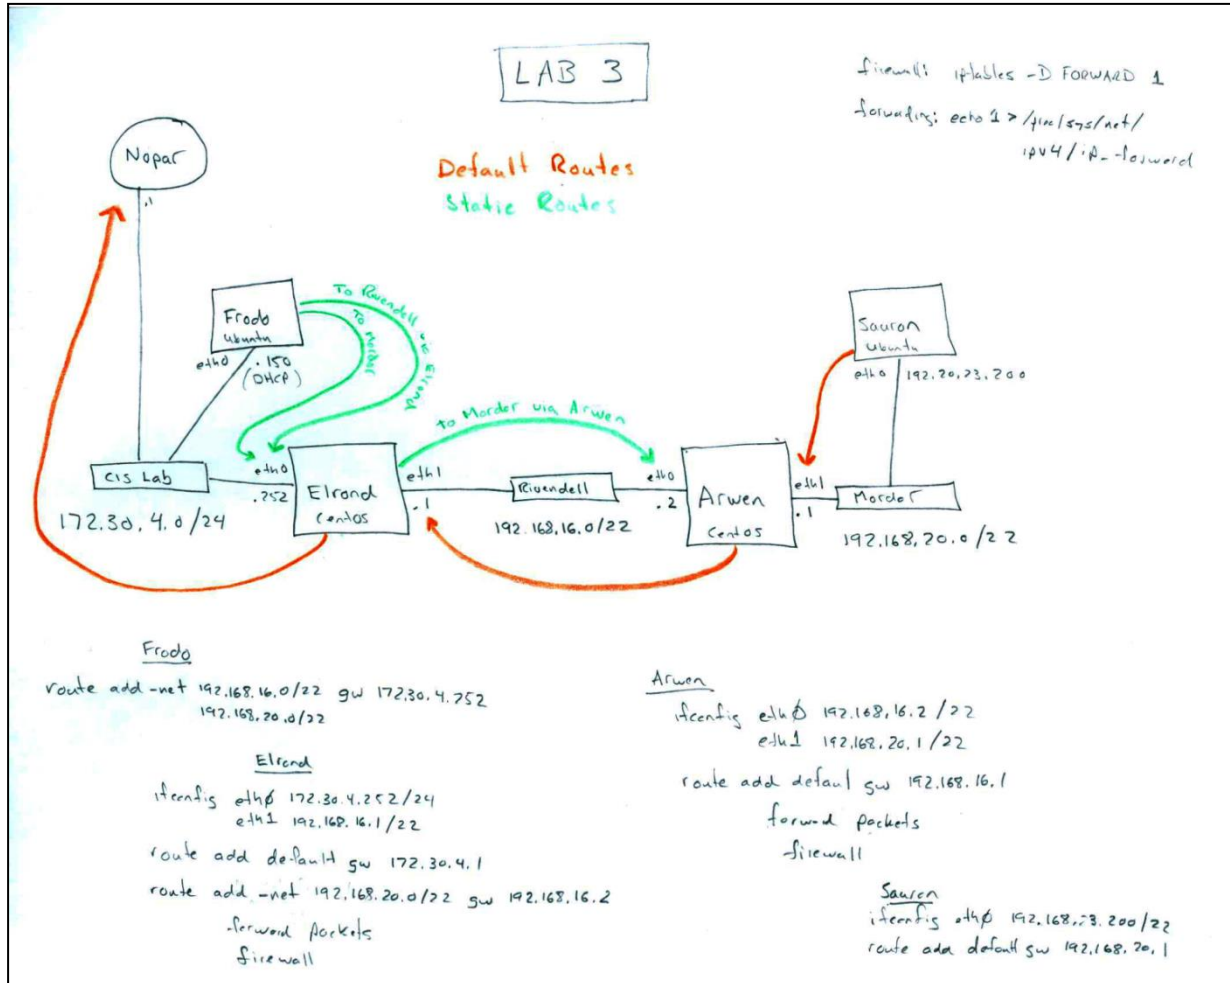 LAB 3
firewall: iptables -D FORWARD 1
forwarding: echo 1 > /proc/sys/net/
ipv4/ip_forward
Default Routes
Static Routes
Nopar
.1
Frodo
Ubuntu
eth0
.150
(DHCP)
To Rivendell via Elrond
To Mordor
to Morder via Arwen
Sauron
Ubuntu
eth0
192.20.23.200
Cis Lab
172.30.4.0/24
eth0
.252
Elrond
CentOS
eth1
.1
Rivendell
192.168.16.0/22
eth0
.2
Arwen
CentOS
eth1
.1
Mordor
192.168.20.0/22
Frodo
route add -net 192.168.16.0/22 gw 172.30.4.252
192.168.20.0/22
Elrond
ifconfig eth0 172.30.4.252/24
eth1 192.168.16.1/22
route add default gw 172.30.4.1
route add -net 192.168.20.0/22 gw 192.168.16.2
forward packets
firewall
Arwen
ifconfig eth0 192.168.16.2/22
eth1 192.168.20.1/22
route add defaul gw 192.168.16.1
forward packets
firewall
Sauron
ifconfig eth0 /22
route add default gw 192.168.20.1